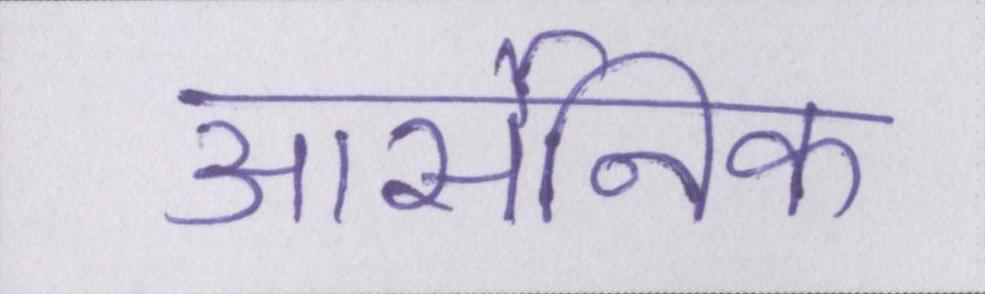 आर्सेनिक